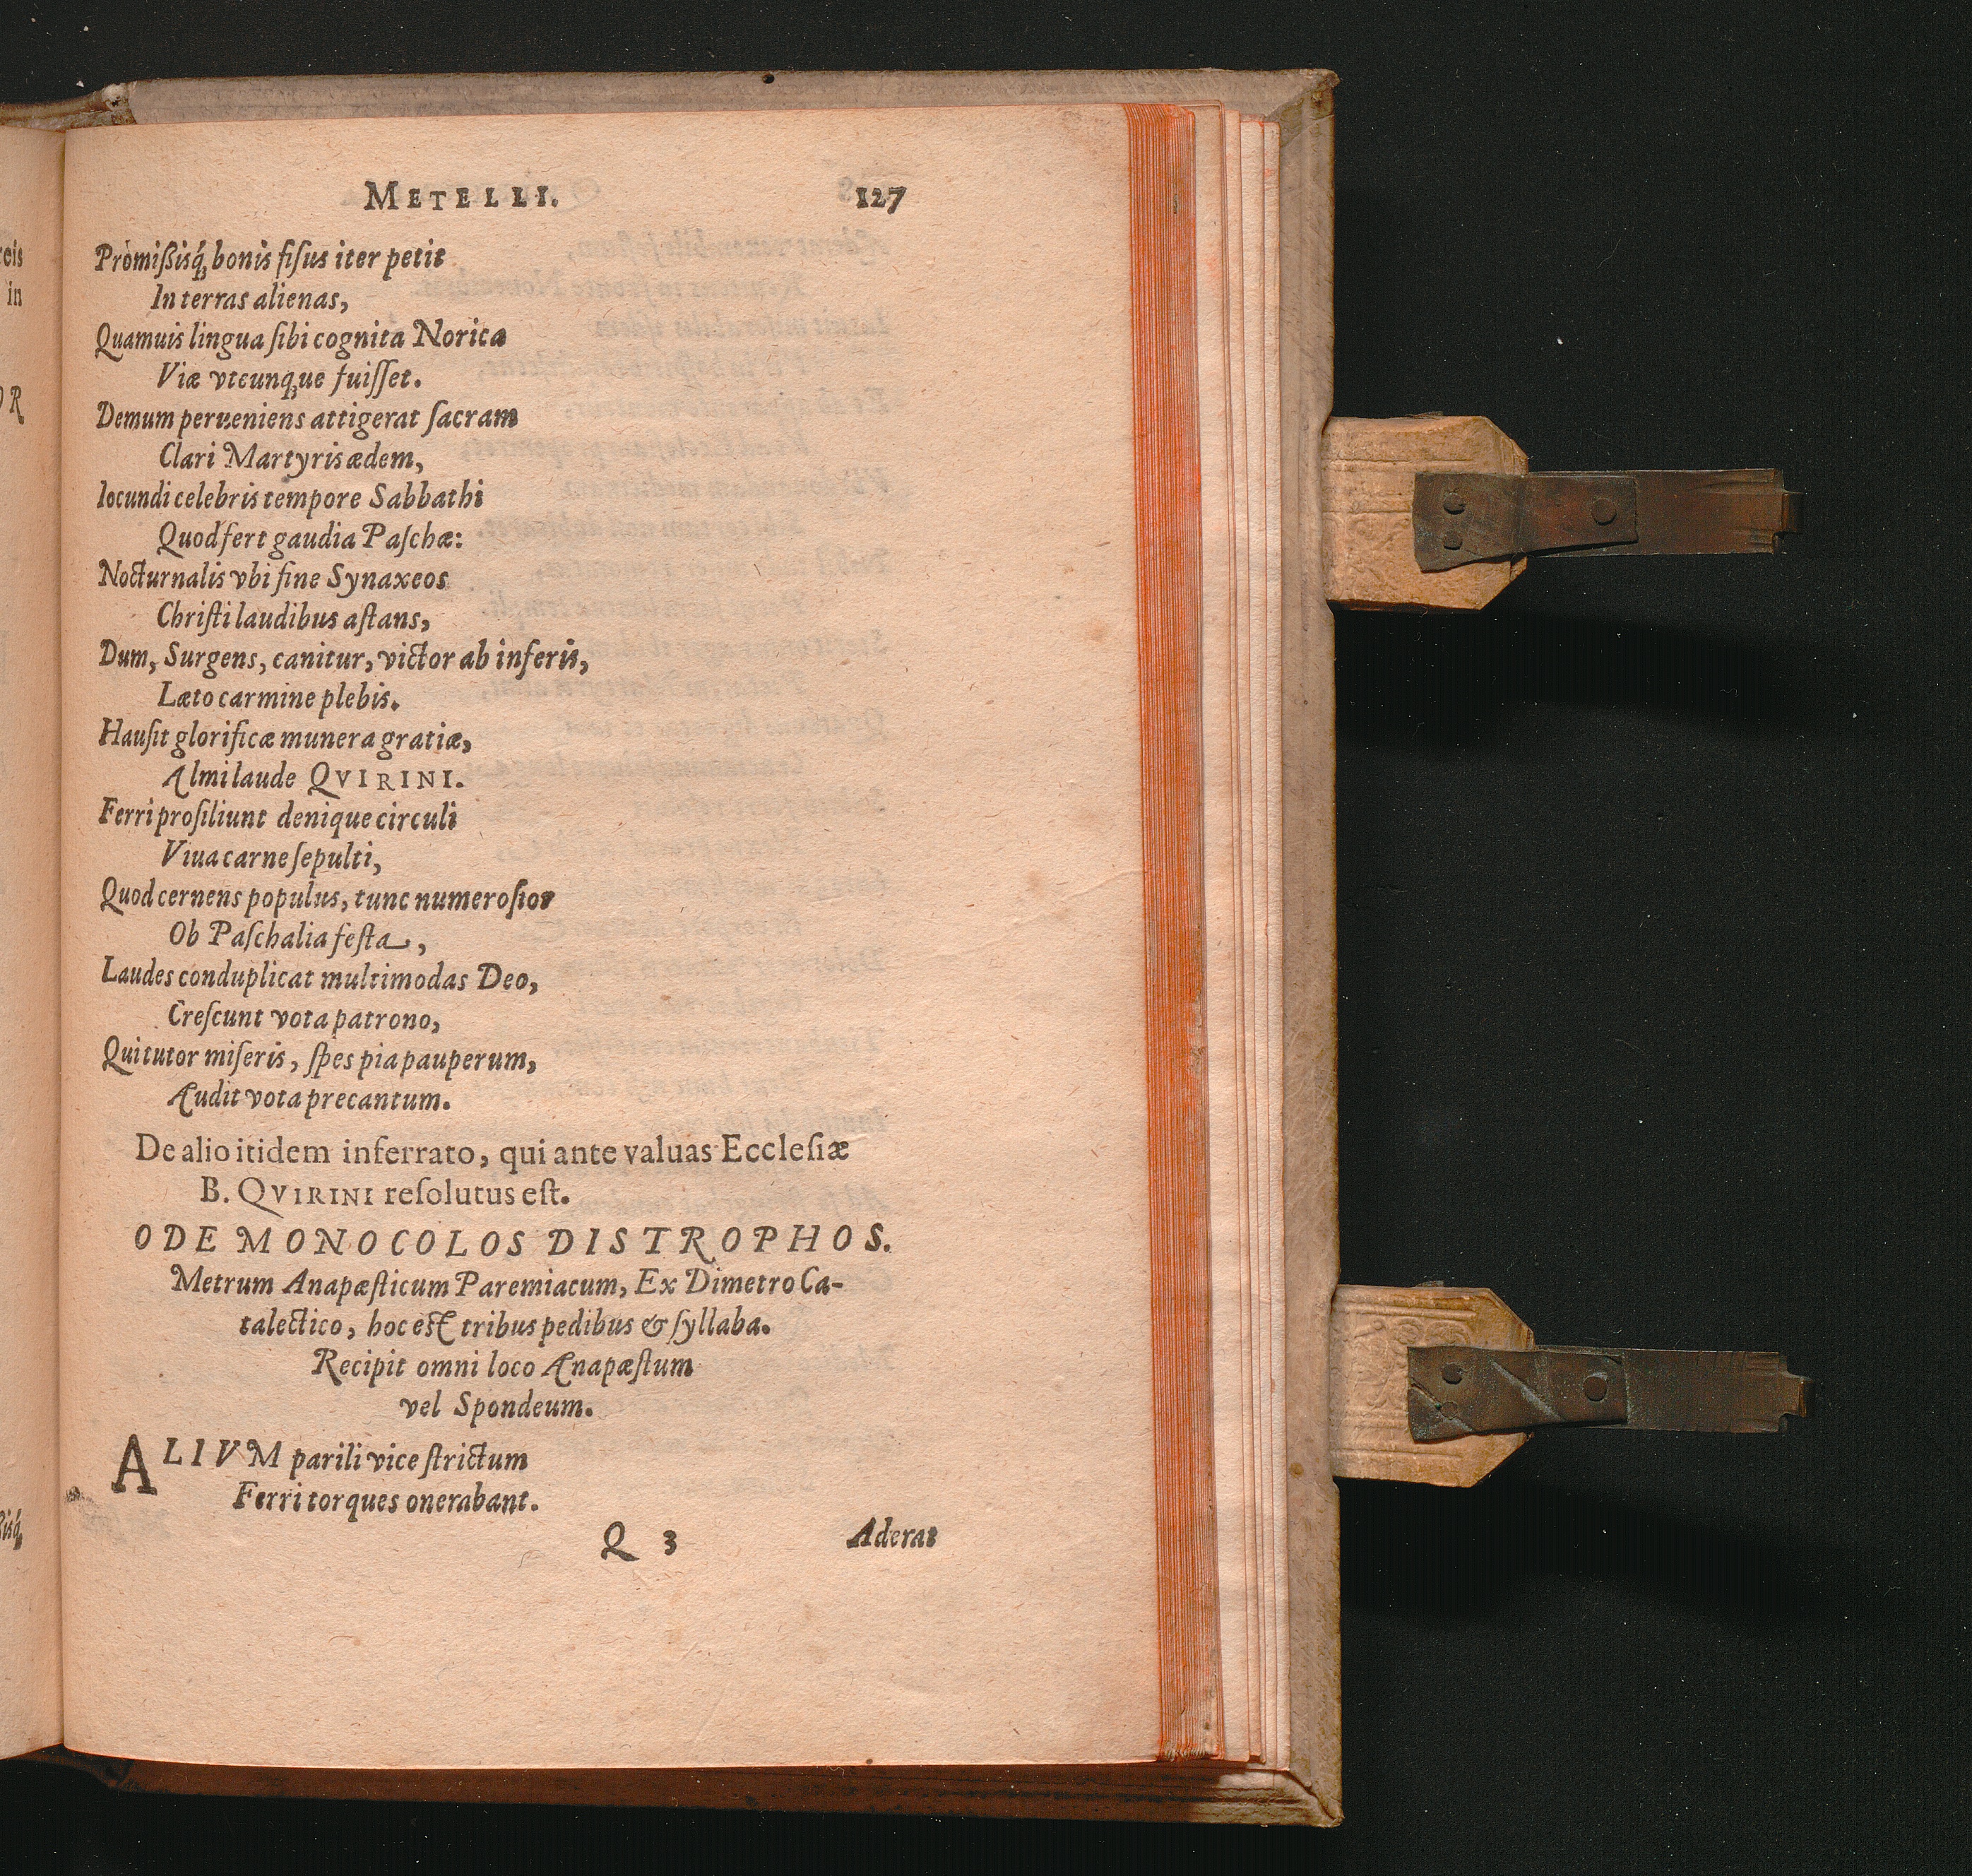 METELLI. 127
Promißisq́; bonis fiſus iter petit
In terras alienas,
Quamuis lingua ſibi cognita Norica
Viæ vtcunq;ue fuiſſet.
Demum perueniens attigerat ſacram
Clari Martyris ædem,
Iocundi celebris tempore Sabbathi
Quod fert gaudia Paſchæ:
Nocturnalis vbi fine Synaxeos
Chriſti laudibus aſtans,
Dum, Surgens, canitur, victor ab inferis,
Læto carmine plebis.
Hauſit glorificæ munera gratiæ,
Almi laude QVIRINI.
Ferri proſiliunt denique circuli
Viua carne ſepulti,
Quod cernens populus, tunc numeroſior
Ob Paſchalia feſta,
Laudes conduplicat multimodas Deo,
Creſcunt vota patrono,
Qui tutor miſeris, ſpes pia pauperum,
Audit vota precantum.
De alio itidem inferrato, qui ante valuas Eccleſiæ
B. QVIRINI reſolutus eſt.
ODE MONOCOLOS DISTROPHOS.
Metrum Anapæſticum Paremiacum, Ex Dimetro Ca-
talectico, hoc eſt tribus pedibus & ſyllaba.
Recipit omni loco Anapæſtum
vel Spondeum.
ALIVM parili vice ſtrictum
Ferri torques onerabant.
Q 3 Aderat